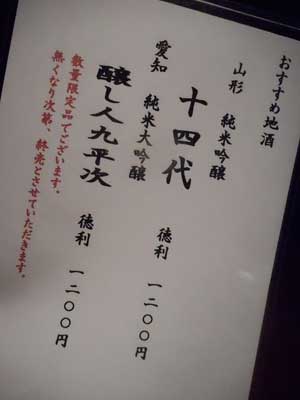 おすすめ地酒
山形 純米吟醸
十四代 徳利 一二〇〇円
愛知 純米大吟醸
醸し人九平次 徳利 一二〇〇円
数量限定品でございます。
無くなり次第、終売とさせていただきます。